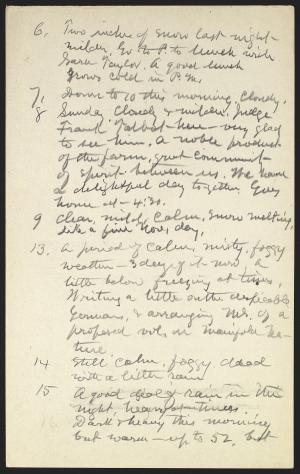 6, Two inches of snow last night
milder, Go to P. to lunch with
Sara Taylor. A good lunch
Grows cold in P.M.
7, Down to 10 this morning, Cloudy.
8 Sunday, Cloudy & milder, Judge
Frank Talbot here - very glad
to see him. A noble product
of the farm, great communit-
of spirit between us. We have
a delightful day together. Goes
home at - 4:30.
9 Clear, mild, Calm, snow melting,
like a fine Nov. day.
13. A period of calm, misty, foggy
weather - 3 days of it now a
little below freezing at times.
Writing a little on the despicable
Germans, & arranging Ms. of a
proposed vol. on Manifold Na-
ture.
14 Still calm, foggy dead
with a little rain
15 A good deal of rain in the
night, heavy at times.
Dark & heavy this morning
but warm - up to 52, but